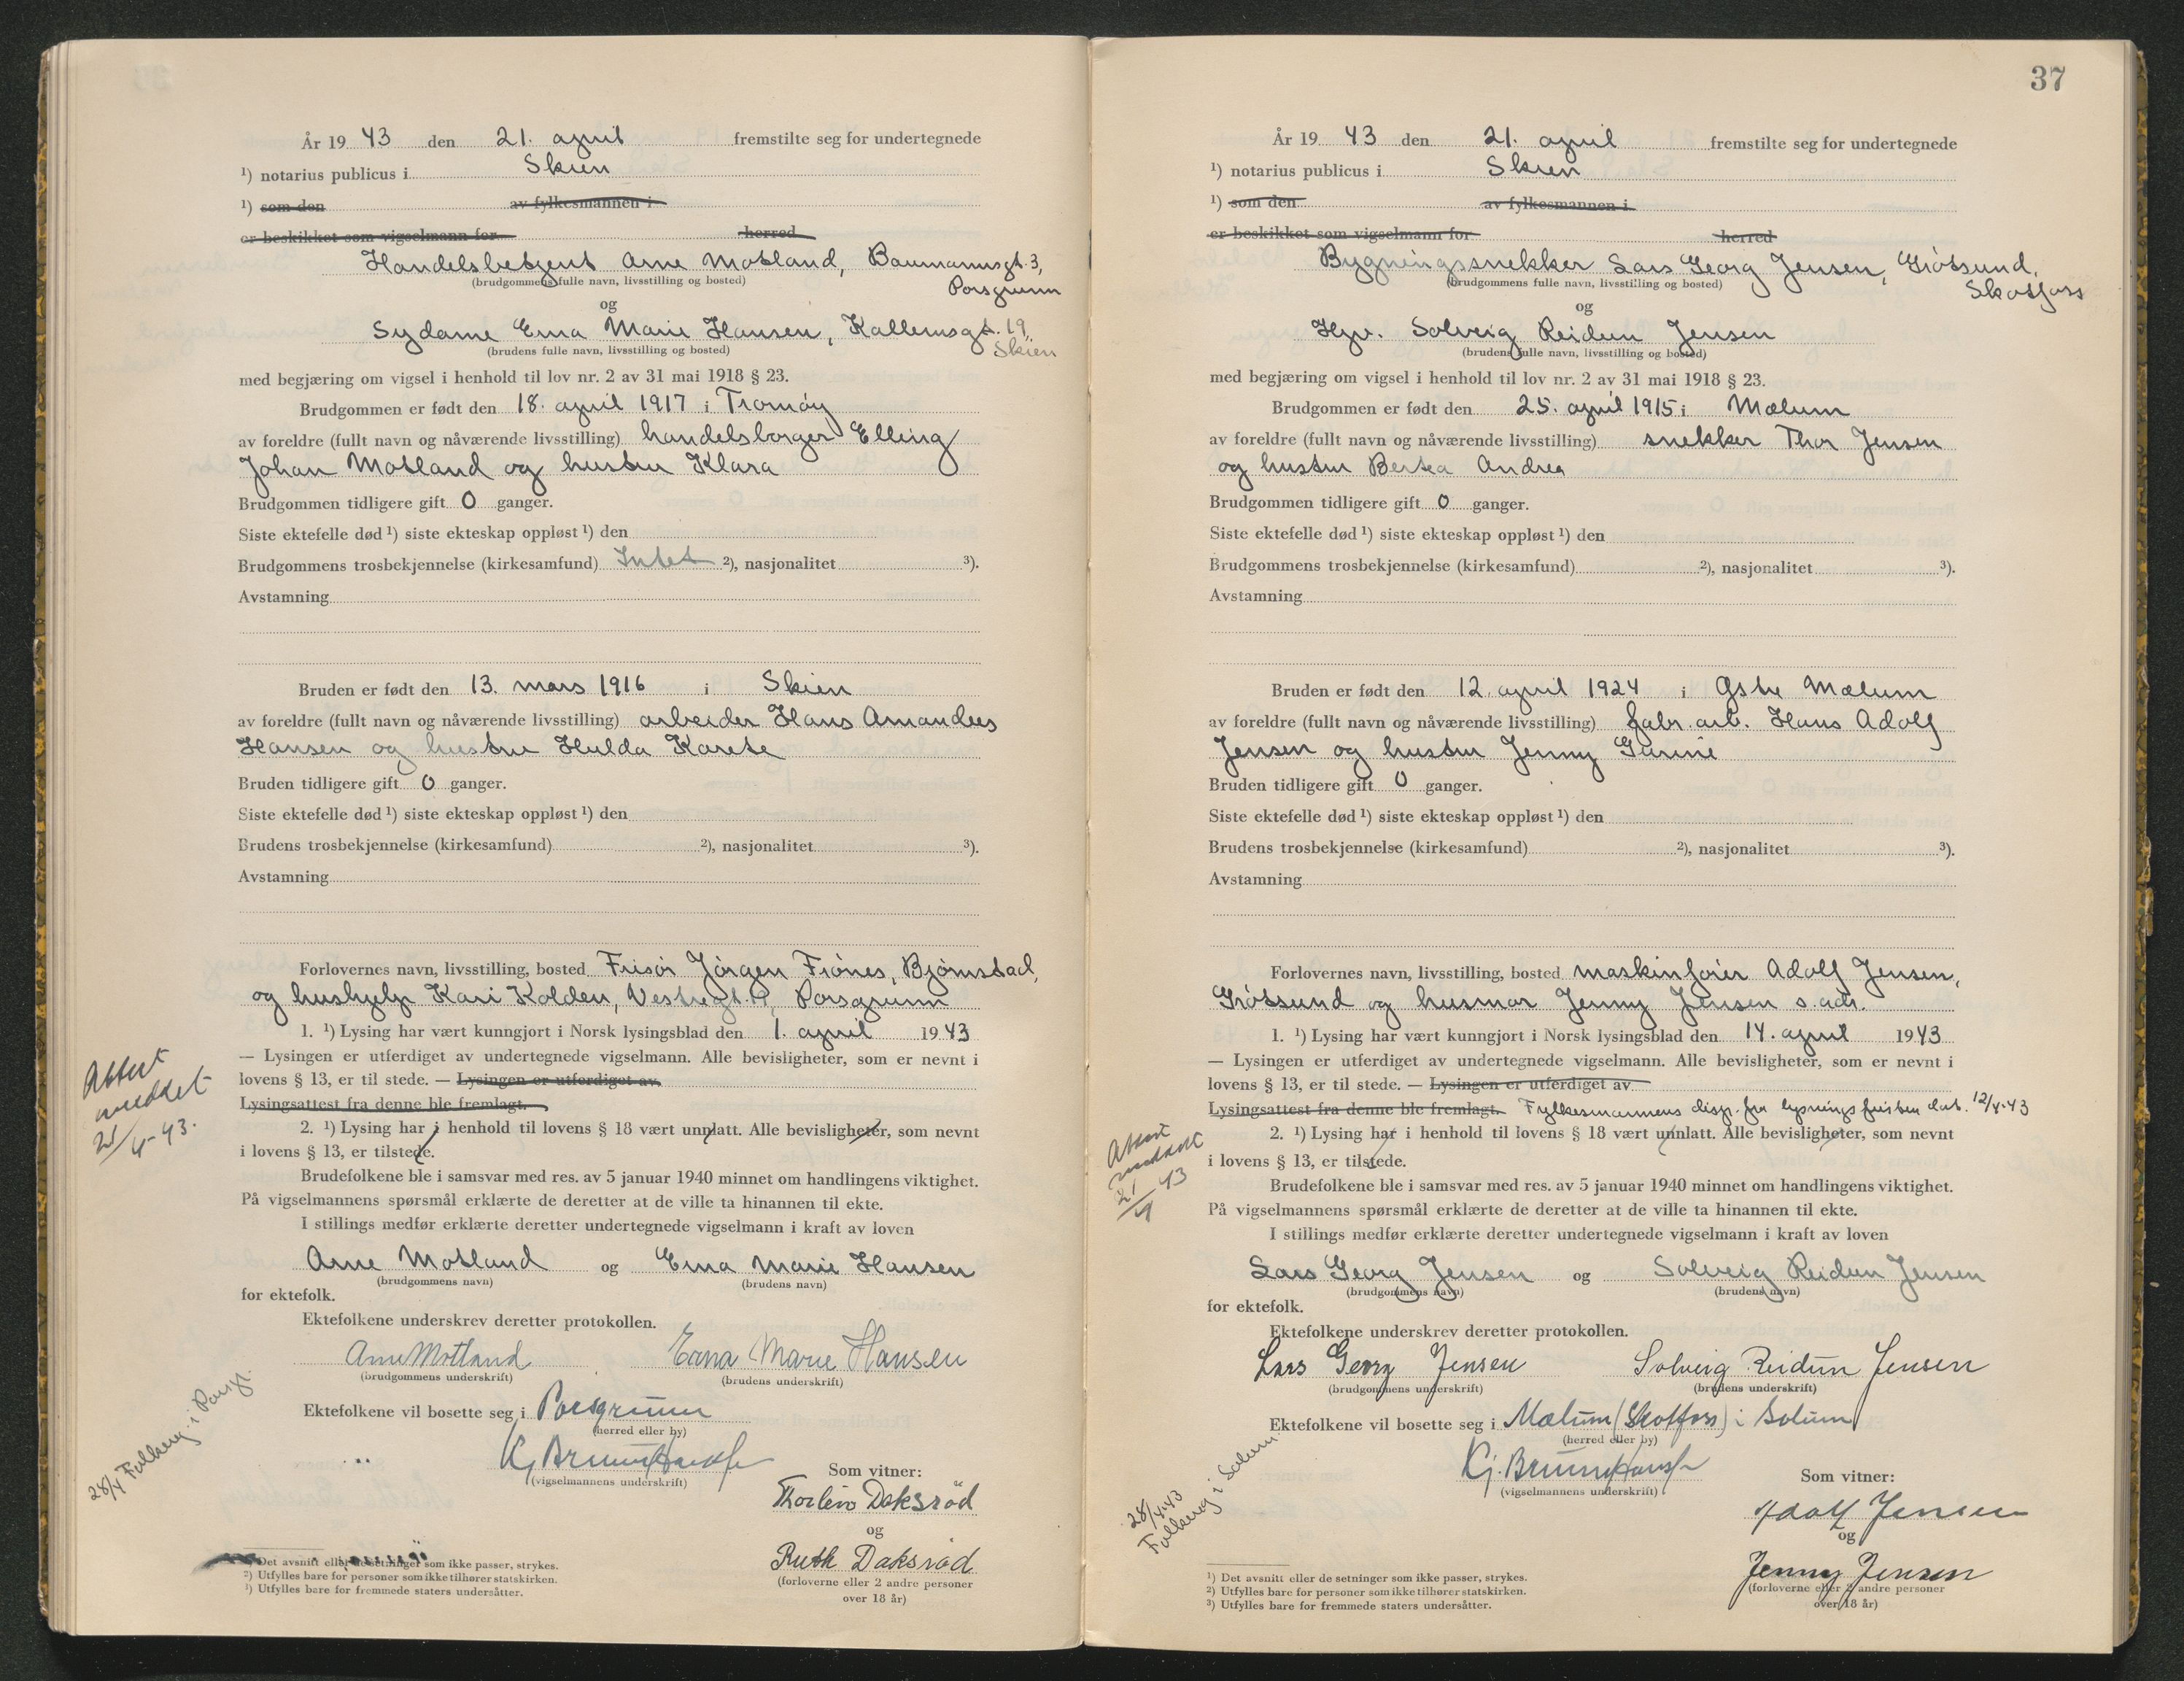 År 19 43 den 21. april fremstilte seg for undertegnede
¹) notarius publicus i Skien
¹) som den av fylkesmannen i
er beskikket som vigselmann for herred
Handelsbetjent Arne Motland, Baumannsgt. 3,
Porsgrunn
(brudgommens fulle navn, livsstilling og bosted)
og
Sydame Erna Marie Hansen, Kallemsgt. 19,
Skien
(brudens fulle navn, livsstilling og bosted)
med begjæring om vigsel i henhold til lov nr. 2 av 31 mai 1918 § 23.
Brudgommen er født den 18. april 1917 i Tromøy
av foreldre (fullt navn og nåværende livsstilling) handelsborger Elling
Johan Motland og hustru Klara
Brudgommen tidligere gift 0 ganger.
Siste ektefelle død ¹) siste ekteskap oppløst ¹) den
Brudgommens trosbekjennelse (kirkesamfund) Intet ²), nasjonalitet ³).
Avstamning
Bruden er født den 13. mars 1916 i Skien
av foreldre (fullt navn og nåværende livsstilling) arbeider Hans Amandus
Hansen og hustru Hulda Karete
Bruden tidligere gift 0 ganger.
Siste ektefelle død ¹) siste ekteskap oppløst ¹) den
Brudens trosbekjennelse (kirkesamfund) ²), nasjonalitet ³).
Avstamning
Forlovernes navn, livsstilling, bosted Frisør Jørgen Frønes, Bjørnstad,
og hushjelp Kari Kolden, Vestregt. 19, Porsgrunn
1. ¹) Lysing har vært kunngjort i Norsk lysingsblad den 1. april 1943
— Lysingen er utferdiget av undertegnede vigselmann. Alle bevisligheter, som er nevnt i
lovens § 13, er til stede. — Lysingen er utferdiget av
Lysingsattest fra denne ble fremlagt.
2. ¹) Lysing har i henhold til lovens § 18 vært unnlatt. Alle bevisligheter, som nevnt
i lovens § 13, er tilstede.
Attest
meddelt
21/4-43.
Brudefolkene ble i samsvar med res. av 5 januar 1940 minnet om handlingens viktighet.
På vigselmannens spørsmål erklærte de deretter at de ville ta hinannen til ekte.
I stillings medfør erklærte deretter undertegnede vigselmann i kraft av loven
Arne Motland og Erna Marie Hansen
(brudgommens navn) (brudens navn)
for ektefolk.
Ektefolkene underskrev deretter protokollen.
Arne Motland Erna Marie Hansen
(brudgommens underskrift) (brudens underskrift)
Ektefolkene vil bosette seg i Porsgrunn
(herred eller by)
28/4 Folkereg i Porsgr.
(vigselmannens underskrift)
Som vitner:
Thorleiv Daksrød
og
Ruth Daksrød
(forloverne eller 2 andre personer
over 18 år)
¹) Det avsnitt eller de setninger som ikke passer, strykes.
²) Utfylles bare for personer som ikke tilhører statskirken.
¹) Utfylles bare for fremmede staters undersåtter.
37
År 19 43 den 21. april fremstilte seg for undertegnede
¹) notarius publicus i Skien
¹) som den av fylkesmannen i
er beskikket som vigselmann for herred
Bygningssnekker Lars Georg Jensen, Grótsund,
Skotfoss
(brudgommens fulle navn, livsstilling og bosted)
og
Hjv. Solveig Reidun Jensen
(brudens fulle navn, livsstilling og bosted)
med begjæring om vigsel i henhold til lov nr. 2 av 31 mai 1918 § 23.
Brudgommen er født den 25. april 1915 i Mælum
av foreldre (fullt navn og nåværende livsstilling) snekker Thor Jensen
og hustru Bertea Andrea
Brudgommen tidligere gift 0 ganger.
Siste ektefelle død ¹) siste ekteskap oppløst ¹) den
Brudgommens trosbekjennelse (kirkesamfund) ²), nasjonalitet ³).
Avstamning
Bruden er født den 12. april 1924 i Østre Mælum
av foreldre (fullt navn og nåværende livsstilling) fabr. arb. Hans Adolf
Jensen og hustru Jenny Gurine
Bruden tidligere gift 0 ganger.
Siste ektefelle død ¹) siste ekteskap oppløst ¹) den
Brudens trosbekjennelse (kirkesamfund) ²), nasjonalitet ³).
Avstamning
Forlovernes navn, livsstilling, bosted maskinfører Adolf Jensen,
Grótsund og husmor Jenny Jensen s. adr.
1. ¹) Lysing har vært kunngjort i Norsk lysingsblad den 14. april 1943
— Lysingen er utferdiget av undertegnede vigselmann. Alle bevisligheter, som er nevnt i
lovens § 13, er til stede. — Lysingen er utferdiget av
Lysingsattest fra denne ble fremlagt. Fylkesmannens disp. fra lysningsfristen dat. 12/4-43
2. ¹) Lysing har i henhold til lovens § 18 vært unnlatt. Alle bevisligheter, som nevnt
i lovens § 13, er tilstede.
Attest
meddelt
21/4 43
Brudefolkene ble i samsvar med res. av 5 januar 1940 minnet om handlingens viktighet.
På vigselmannens spørsmål erklærte de deretter at de ville ta hinannen til ekte.
I stillings medfør erklærte deretter undertegnede vigselmann i kraft av loven
Lars Georg Jensen og Solveig Reidun Jensen
(brudgommens navn) (brudens navn)
for ektefolk.
Ektefolkene underskrev deretter protokollen.
Lars Georg Jensen Solveig Reidun Jensen
(brudgommens underskrift) (brudens underskrift)
Ektefolkene vil bosette seg i Mælum (Skotfoss) i Solum
(herred eller by)
28/4-43
Folkereg i Solum
(vigselmannens underskrift)
Som vitner:
Adolf Jensen
og
Jenny Jensen
(forloverne eller 2 andre personer
over 18 år)
¹) Det avsnitt eller de setninger som ikke passer, strykes.
²) Utfylles bare for personer som ikke tilhører statskirken.
³) Utfylles bare for fremmede staters undersåtter.